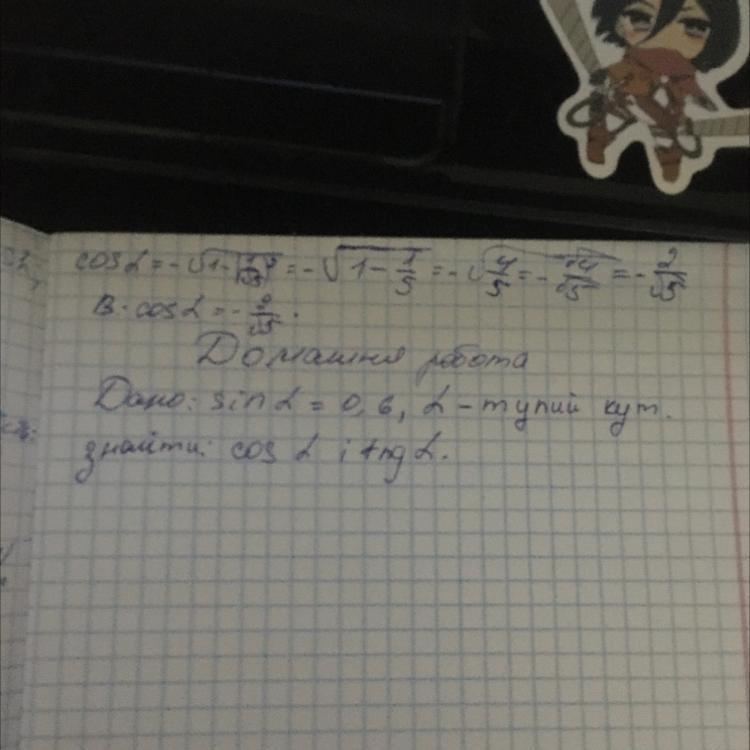 cos α = -√1-(1/√5)² = -√1 - 1/5 = -√4/5 = -√4/√5 = -2/√5
В: cos α = -2/√5.
Домашня робота
Дано: sin α = 0,6, α - тупий кут.
знайти: cos α і tng α.